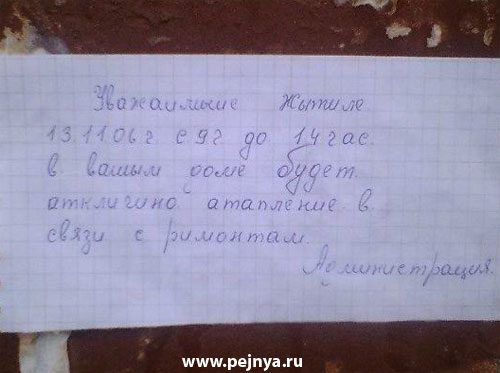 Уважаимыие жытиле.
13.11.06 г. с 9 г до 14 час.
в вашым доме будет
аткличино атапление в
связи с римонтам.
Администрация.
www.pejnya.ru